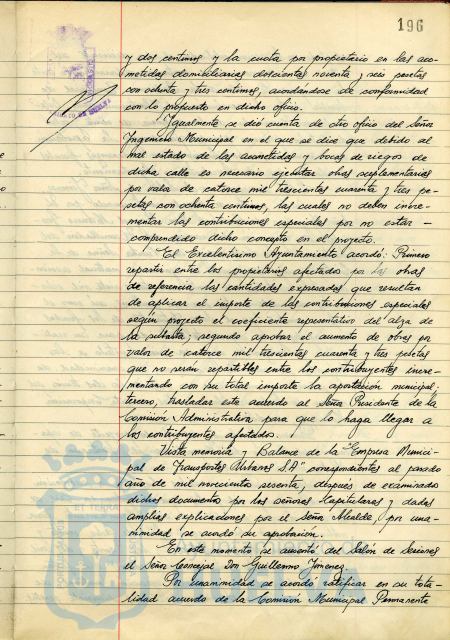 196
y dos centimos y la cuota por propietario en las aco-
metidas domiciliarias doscientas noventa y seis pesetas
con ochenta y tres centimos, acordandose de conformidad
con lo propuesto en dicho oficio.
Igualmente se dió cuenta de otro oficio del Señor
Ingeniero Municipal en el que se dice que debido al
mal estado de las acometidas y bocas de riegos de
dicha calle es necesario ejecutar obras suplementarias
por valor de catorce mil trescientas cuarenta y tres pe-
setas con ochenta centimos, las cuales no deben incre-
mentar las contribuciones especiales por no estar -
comprendido dicho concepto en el proyecto.
El Excelentisimo Ayuntamiento acordó: Primero
repartir entre los propietarios afectados por las obras
de referencia las cantidades expresadas que resultan
de aplicar el importe de las contribuciones especiales
según proyecto el coeficiente representativo del alza de
la subasta; segundo aprobar el aumento de obras por
valor de catorce mil trescientas cuarenta y tres pesetas
que no serán repartibles entre los contribuyentes incre-
mentando con su total importe la aportación municipal;
tercero, trasladar este acuerdo al Señor Presidente de la
Comisión Administrativa para que lo haga llegar a
los contribuyentes afectados.
Vista memoria y Balance de la "Empresa Munici-
pal de Transportes Urbanos S.A" correspondientes al pasado
año de mil novecientos sesenta, después de examinados
dichos documentos por los señores Capitulares y dadas
amplias explicaciones por el Señor Alcalde, por una-
nimidad se acordó su aprobación.
En este momento se ausentó del Salón de Sesiones
el Señor Concejal Don Guillermo Jimenez.
Por unanimidad se acordó ratificar en su tota-
lidad acuerdo de la Comisión Municipal Permanente